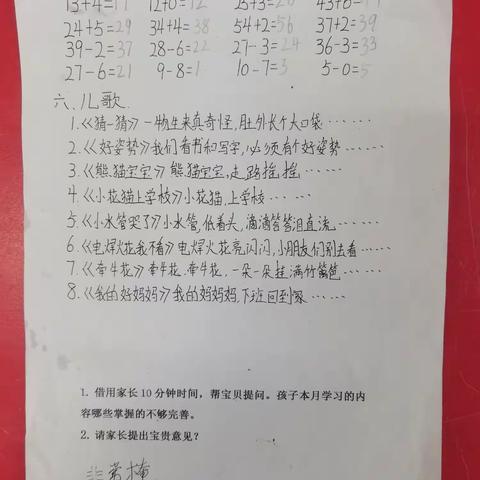 13+4=17 12+0=12 23+3=26
24+5=29 34+4=38 54+2=56 37+2=39
39-2=37 28-6=22 27-3=24 36-3=33
27-6=21 9-8=1 10-7=3 5-0=5
六、儿歌.
1.《猜一猜》一物生来真奇怪,肚外长个大口袋……
2.《好姿势》我们看书和写字,必须有个好姿势……
3.《熊猫宝宝》熊猫宝宝,走路摇摇……
4.《小花猫上学校》小花猫,上学校……
5.《小水管哭了》小水管,低着头,滴滴答答泪直流……
6.《电焊火花我不看》电焊火花亮闪闪,小朋友们别去看……
7.《牵牛花》牵牛花.牵牛花,一朵一朵挂满竹篱笆……
8.《我的好妈妈》我的妈妈妈,下班回到家……
1. 借用家长10分钟时间，帮宝贝提问。孩子本月学习的内
容哪些掌握的不够完善。
2. 请家长提出宝贵意见？
非常棒